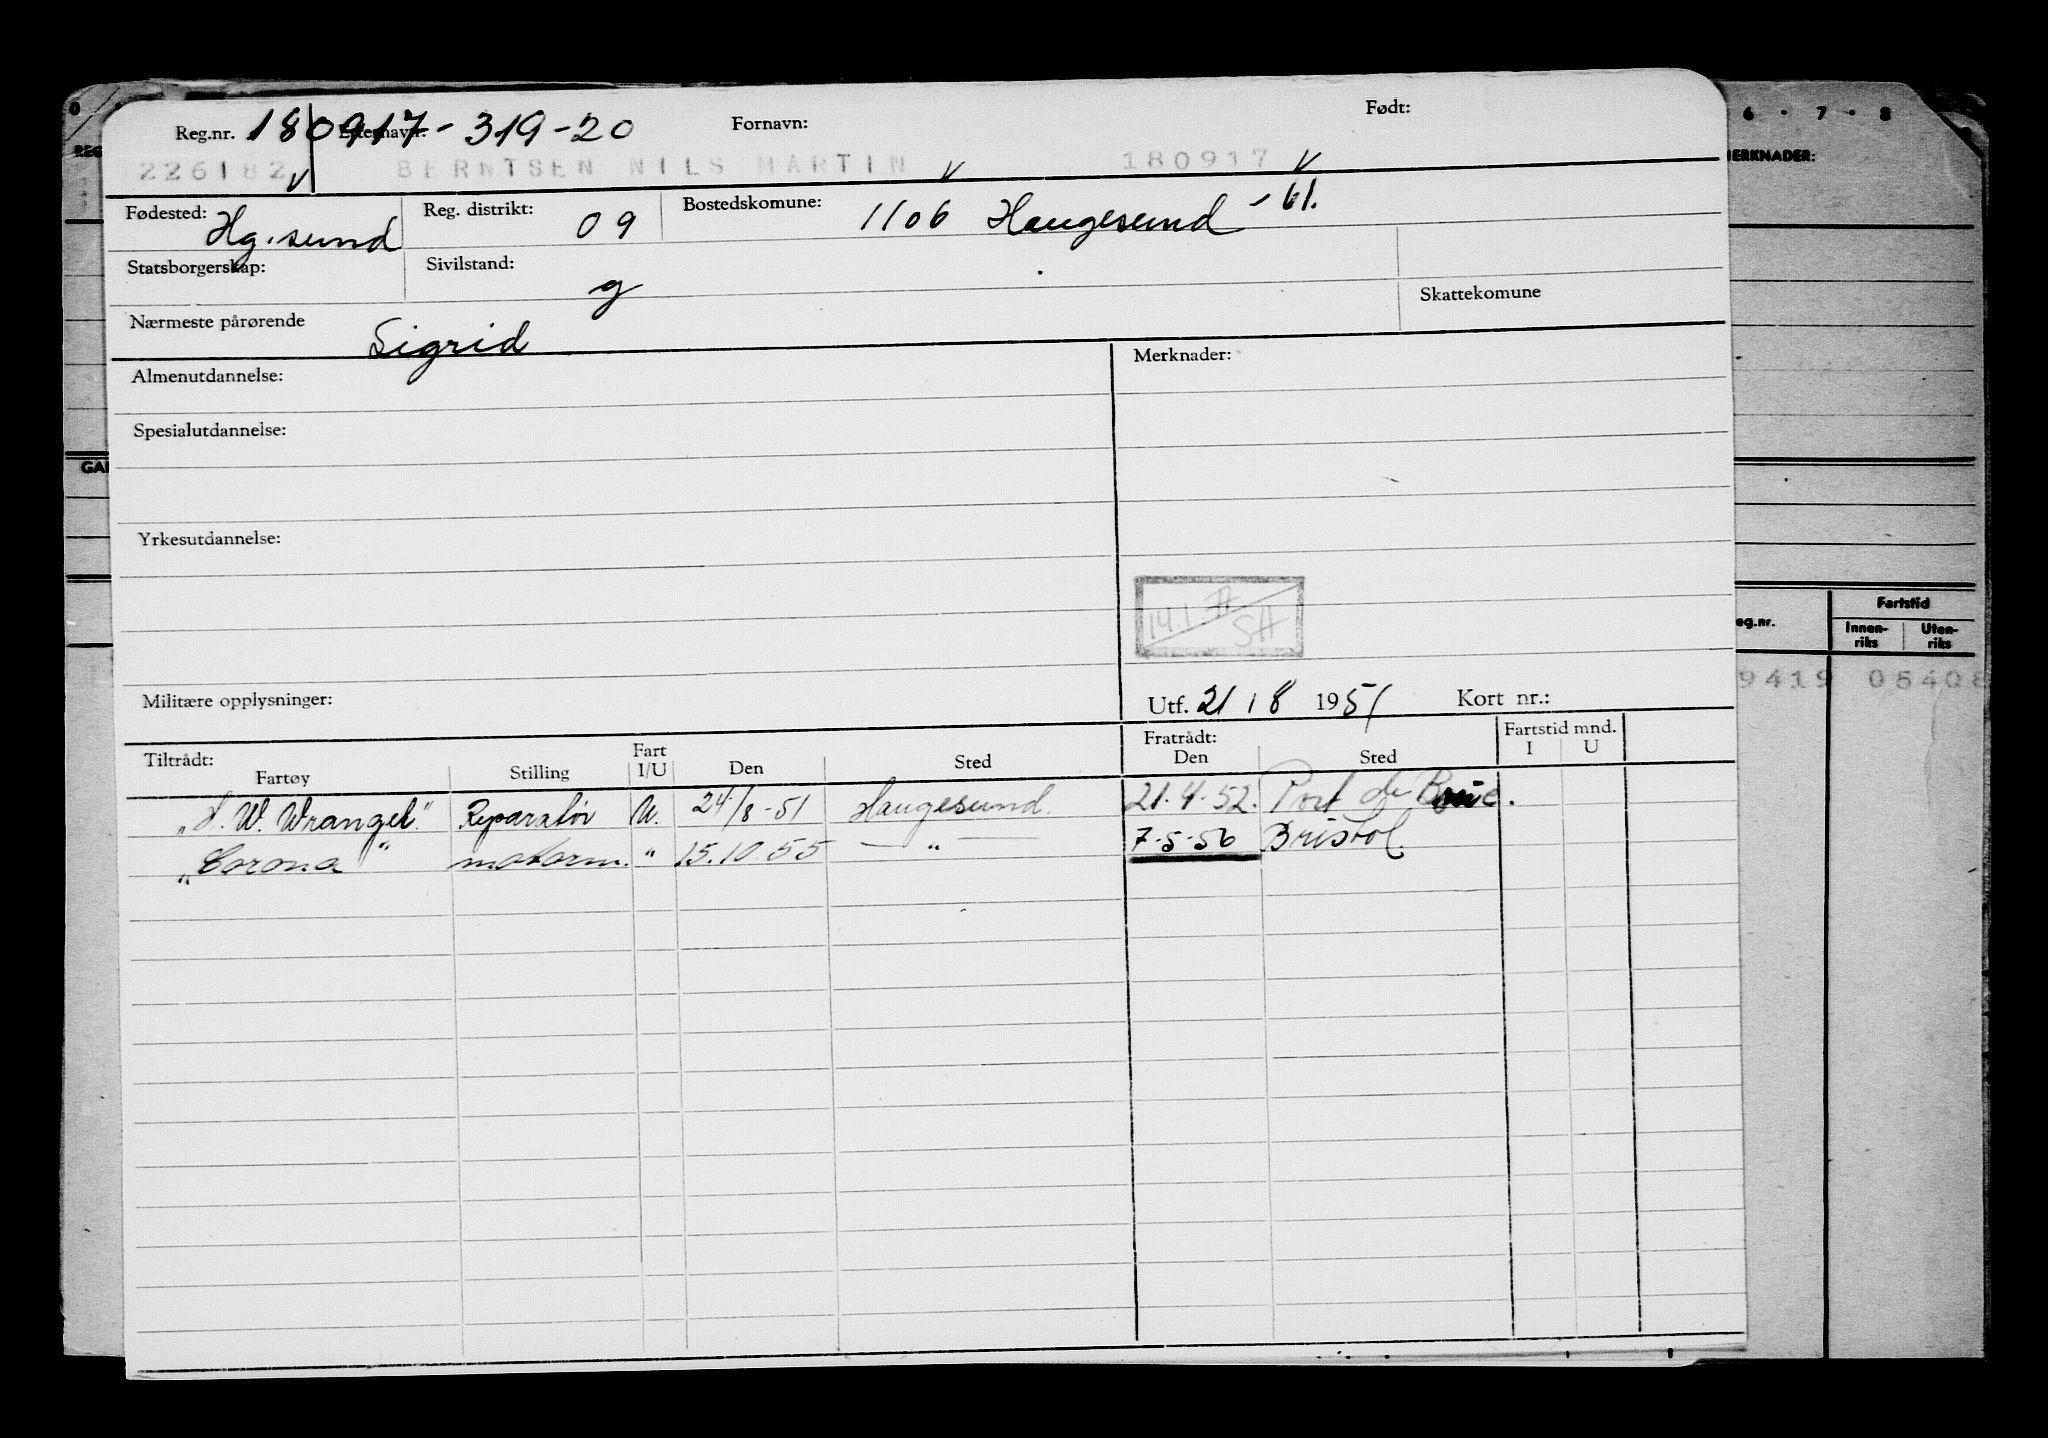 Reg.nr. 180917-319-20 Etternavn: Fornavn: Født:
226182 BERNTSEN NILS MARTIN 180917
Fødested: Hg.sund Reg. distrikt: 09 Bostedskomune: 1106 Haugesund -61.
Statsborgerskap: Sivilstand: g
Skattekomune
Nærmeste pårørende Sigrid
Almenutdannelse: Merknader:
Spesialutdannelse:
Yrkesutdannelse:
Militære opplysninger: Utf. 21/8 1951 Kort nr.:
Tiltrådt: Fratrådt: Fartstid mnd.
Fartøy Stilling Fart I/U Den Sted Den Sted I U
"H. W. Wrangel" Reparatør U. 24/8-51 Haugesund. 21.4.52. Port de Bouc.
"Corona" motorm. " 15.10.55 — " — 7-5-56 Bristol.
6 · 7 · 8
MERKNADER:
REG
GAI
eg.nr. Fartstid
Innen-riks Uten-riks
9419 05408